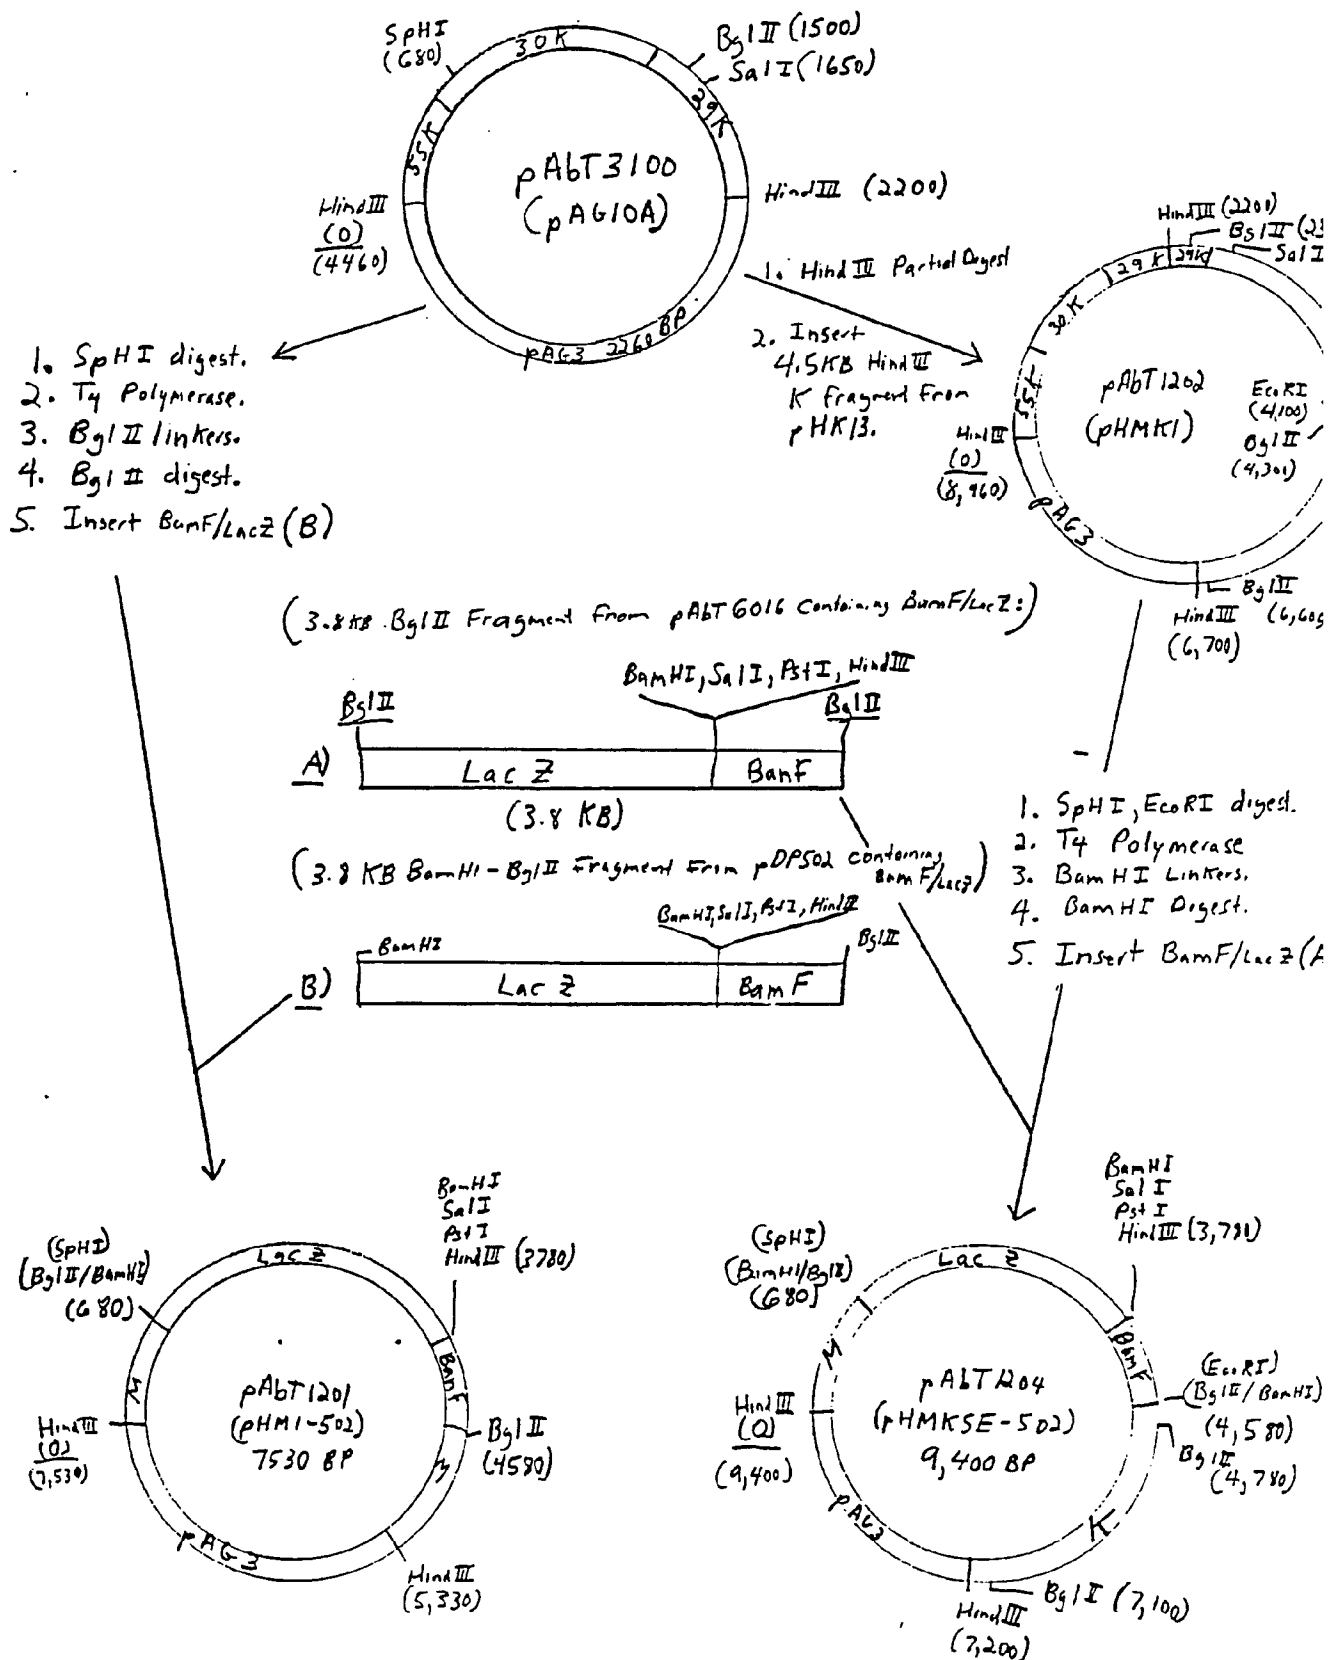 SpHI
(680)
30K
BglII (1500)
SalI (1650)
29K
55K
pAbT3100
(pAG10A)
HindIII (2200)
HindIII
(0)
(4460)
pAG3 2260 BP
1. HindIII Partial Digest
2. Insert
4.5KB HindIII
K fragment From
pHK13.
1. SpHI digest.
2. T4 Polymerase.
3. BglII linkers.
4. BglII digest.
5. Insert BamF/LacZ (B)
HindIII (2200)
BglII
SalI
29K
29K
30K
55K
pAbT1202
(pHMK1)
EcoRI
(4,100)
BglII
(4,301)
HindIII
(0)
(8,960)
pAG3
BglII
HindIII
(6,700)
(3.8KB BglII Fragment From pAbT6016 Containing BamF/LacZ:)
BamHI, SalI, PstI, HindIII
BglII
BglII
A)
LacZ
BamF
(3.8 KB)
(3.8 KB BamHI-BglII Fragment From pDP502 containing
BamF/LacZ)
BamHI, SalI, PstI, HindIII
BamHI
BglII
B)
LacZ
BamF
1. SpHI, EcoRI digest.
2. T4 Polymerase
3. BamHI Linkers.
4. BamHI Digest.
5. Insert BamF/LacZ
(SpHI)
(BglII/BamHI)
(680)
LacZ
BamHI
SalI
PstI
HindIII (3780)
BamF
M
pAbT1201
(pHM1-502)
7530 BP
HindIII
(0)
(7,530)
BglII
(4580)
M
pAG3
HindIII
(5,330)
(SpHI)
(BamHI/BglII)
(680)
LacZ
BamHI
SalI
PstI
HindIII (3,780)
BamF
M
pAbT1204
(pHMKSE-502)
9,400 BP
HindIII
(0)
(9,400)
(EcoRI)
(BglII/BamHI)
(4,580)
BglII
(4,780)
K
pAG3
BglII (7,100)
HindIII
(7,200)